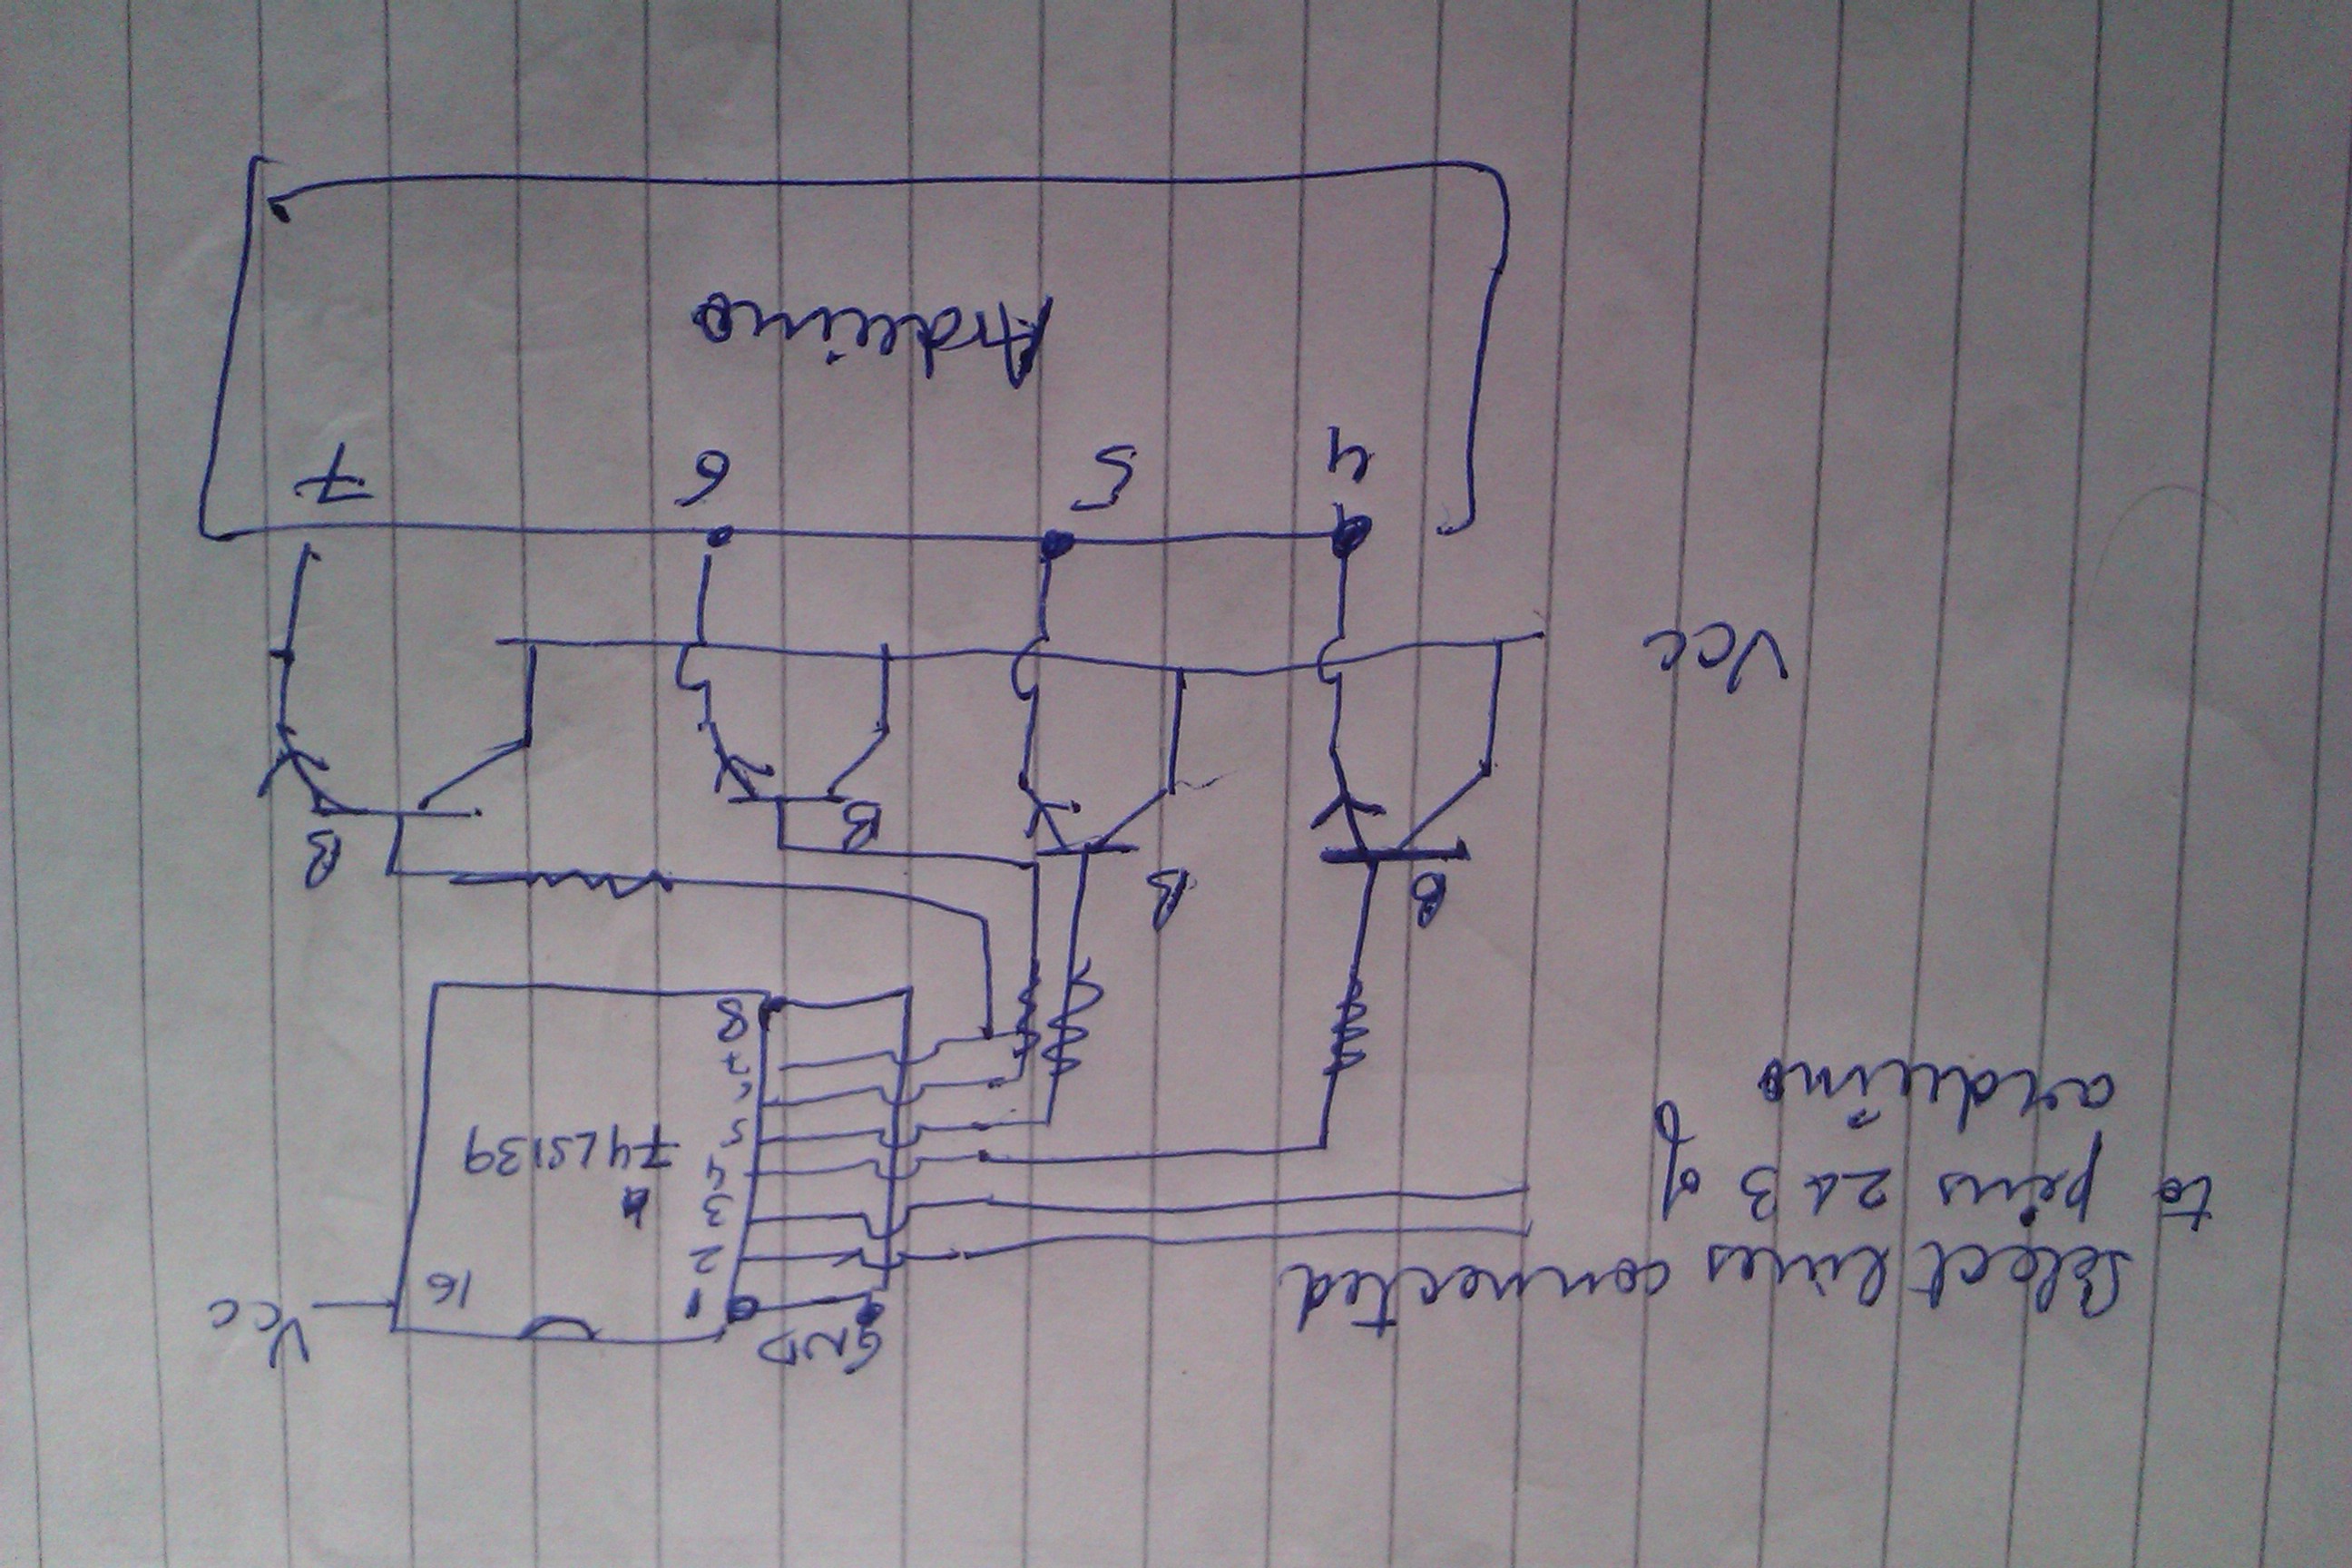 Select lines connected
to pins 2 & 3 of
arduino
GND
Vcc
1
16
2
3
4
74LS139
5
6
7
8
B
B
B
B
Vcc
4
5
6
7
Arduino